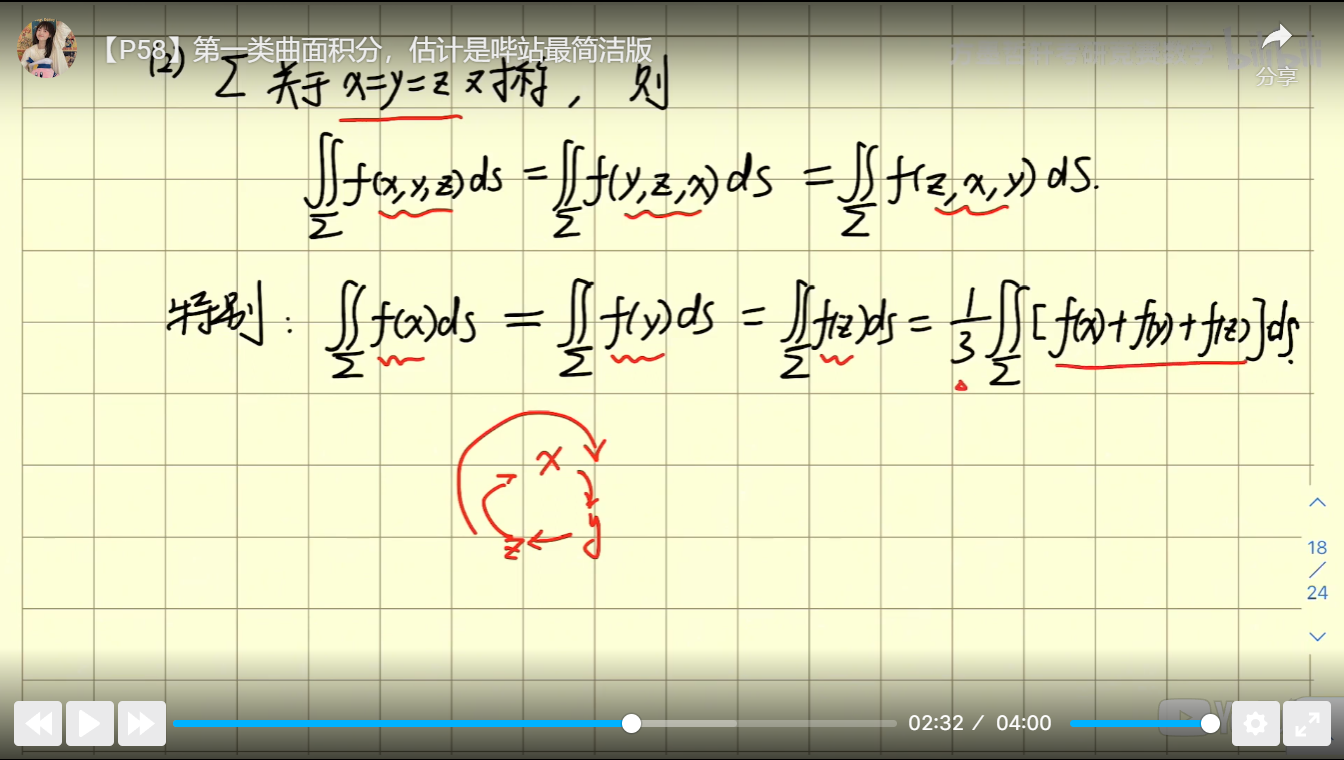 【P58】第一类曲面积分，估计是哔站最简洁版
分享
(2) Σ 关于 x=y=z 对称，则
∬_Σ f(x,y,z)ds = ∬_Σ f(y,z,x)ds = ∬_Σ f(z,x,y)dS.
特别：∬_Σ f(x)ds = ∬_Σ f(y)ds = ∬_Σ f(z)ds = 1/3 ∬_Σ [f(x)+f(y)+f(z)]ds.
x
y
z
18
/
24
02:32 / 04:00